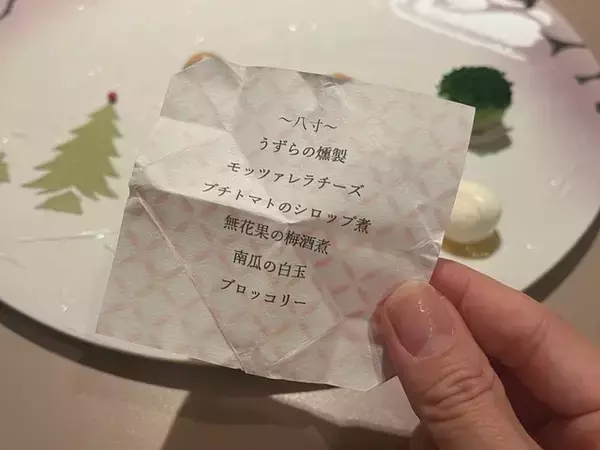 ～八寸～
うずらの燻製
モッツァレラチーズ
プチトマトのシロップ煮
無花果の梅酒煮
南瓜の白玉
ブロッコリー